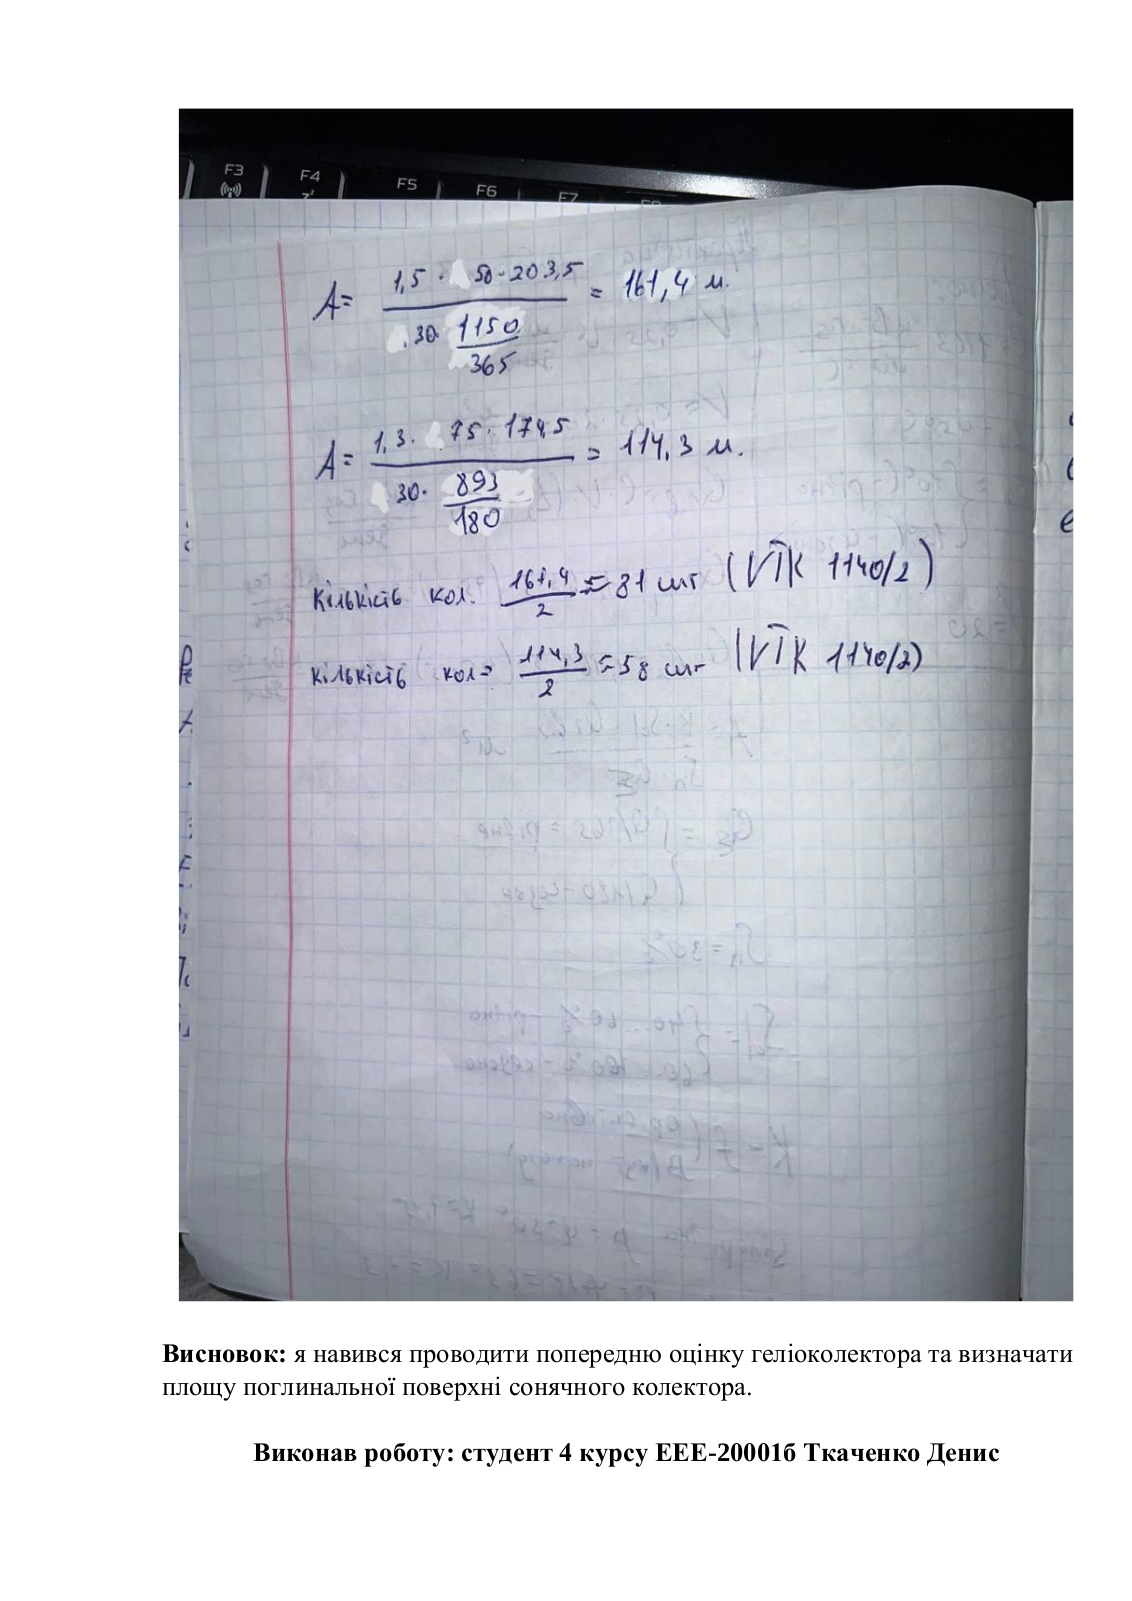 F3 F4 F5 F6 F7
A = 1,5 · 50 · 203,5 / 30 · 1150/365 = 161,4 м.
A = 1,3 · 75 · 174,5 / 30 · 893/180 = 114,3 м.
Кількість кол. 161,4/2 = 81 шт (VTK 1140/2)
Кількість кол = 114,3/2 = 58 шт (VTK 1140/2)
Висновок: я навився проводити попередню оцінку геліоколектора та визначати
площу поглинальної поверхні сонячного колектора.
Виконав роботу: студент 4 курсу ЕЕЕ-20001б Ткаченко Денис